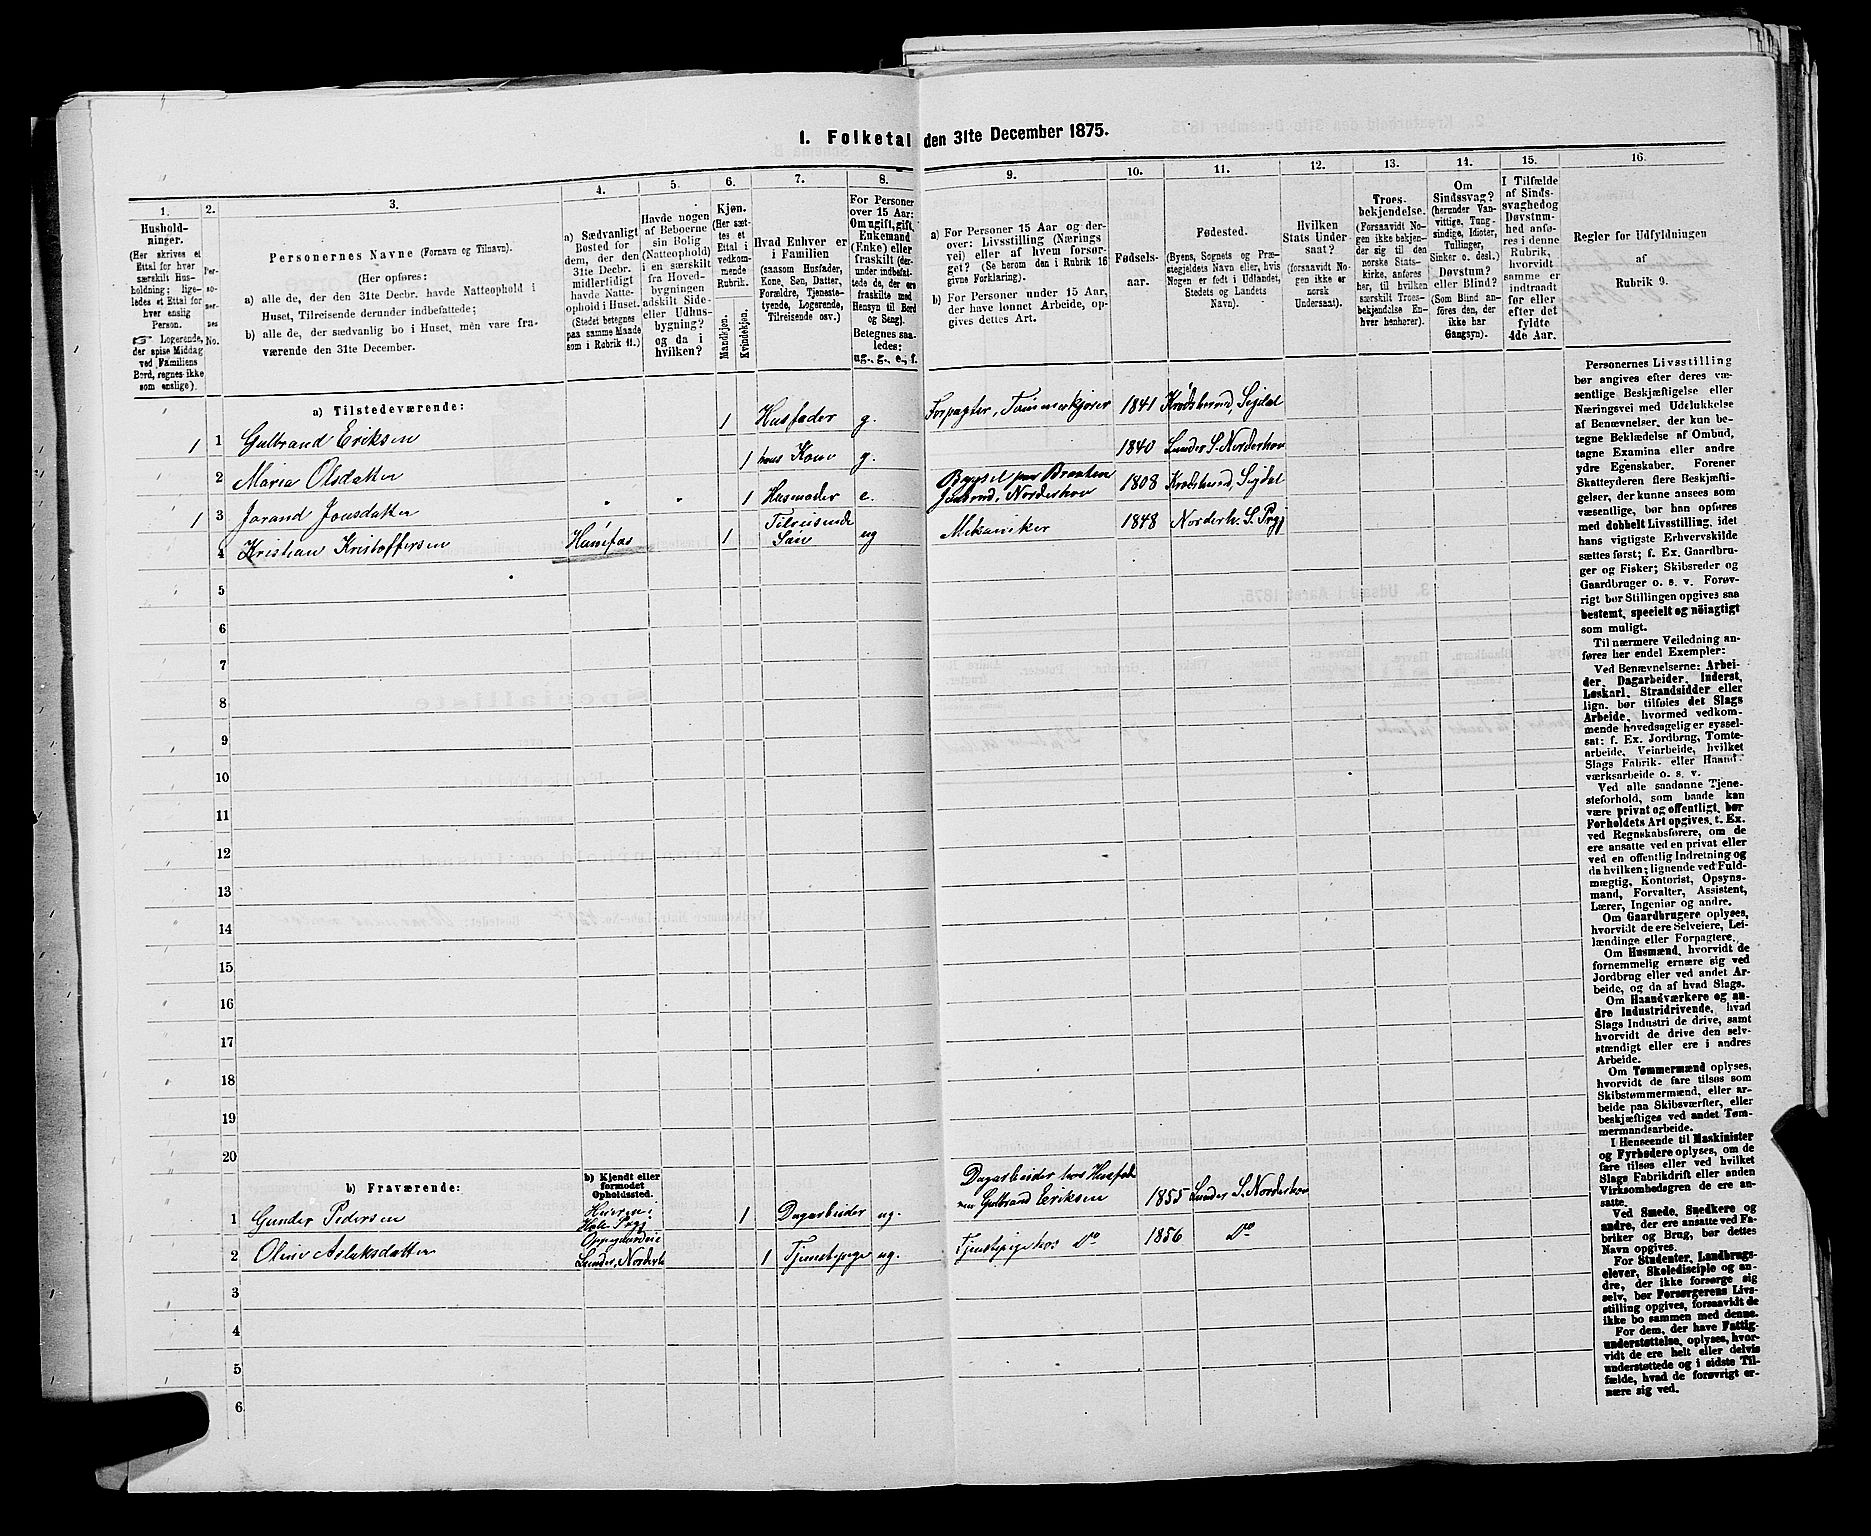 I. Folketal den 31te December 1875.
1. 2. 3. 4. 5. 6. 7. 8. 9. 10. 11. 12. 13. 14. 15. 16.
Hushold-
ninger.
(Her skrives et
Ettal for hver
særskilt Hus-
holdning; lige-
ledes et Ettal for
hver enslig
Person.
☞ Logerende,
der spise Middag
ved Familiens
Bord, regnes ikke
som enslige).
Per-
so-
nes
No.
Personernes Navne (Fornavn og Tilnavn).
(Her opføres:
a) alle de, der den 31te Decbr. havde Natteophold i
Huset, Tilreisende derunder indbefattede;
b) alle de, der sædvanlig bo i Huset, men vare fra-
værende den 31te December.
a) Sædvanligt
Bosted for
dem, der den
31te Decbr.
midlertidigt
havde Natte-
ophold i Huset.
(Stedet betegnes
paa samme Maade
som i Rubrik 11.)
Havde nogen
af Beboerne
sin Bolig
(Natteophold)
i en særskilt
fra Hoved-
bygningen
adskilt Side-
eller Udhus-
bygning?
og da i
hvilken?
Kjøn.
(Her sæt-
tes et
Ettal i
vedkom-
mende
Rubrik.
Mandkjøn.
Kvindekjøn.
Hvad Enhver er
i Familien
(saasom Husfader,
Kone, Søn, Datter,
Forældre, Tjeneste-
tyende, Logerende,
Tilreisende osv.)
For Personer
over 15 Aar:
Om ugift, gift,
Enkemand
(Enke) eller
fraskilt (der-
under indbefat-
tede de, der ere
fraskilte med
Hensyn til Bord
og Seng).
Betegnes saa-
ledes:
ug., g., e., f.
a) For Personer 15 Aar og der-
over: Livsstilling (Nærings
vei) eller af hvem forsør-
get? (Se herom den i Rubrik 16
givne Forklaring).
b) For Personer under 15 Aar,
der have lønnet Arbeide, op-
gives dettes Art.
Fødsels-
aar.
Fødested.
(Byens, Sognets og Præ-
stegjeldets Navn eller, hvis
Nogen er født i Udlandet,
Stedets og Landets
Navn).
Hvilken
Stats Under
saat?
(forsaavidt No-
gen ikke er
norsk
Undersaat).
Troes-
bekjendelse.
(Forsaavidt No-
gen ikke bekjen-
der sig til den
norske Stats-
kirke, anføres
her, til hvilken
særskilt Troes-
bekjendelse En-
hver henhører).
Om
Sindssvag?
(herunder Van-
vittige, Tung-
sindige, Idioter,
Tullinger,
Sinker o. desl.)
Døvstum?
eller Blind?
(Som Blind an-
føres den, der
ikke har
Gangsyn).
I Tilfælde
af Sinds-
svaghed og
Døvstum-
hed anfø-
res i denne
Rubrik,
hvorvidt
samme er
indtraadt
før eller
efter det
fyldte
4de Aar.
Regler for Udfyldningen
af
Rubrik 9.
a) Tilstedeværende:
1 1 Gulbrand Eriksen 1 Husfader g. Forpagter, Tømmerkjører 1841 Krødsherred, Sigdal
2 Maria Olsdatter 1 hans Kone g. 1840 Lunder S. Norderhov
1 3 Jorand Jonsdatter " " 1 Husmoder e. Bygsel paa Braaten
Norderhov 1808 Krødsherred, Sigdal
4 Kristian Kristoffersen Hønefos 1 Tilreisende
ug Mekaniker 1848 Norderh. S. Prgj
5
6
7
8
9
10
11
12
13
14
15
16
17
18
19
20
b) Fraværende:
b) Kjendt eller
formodet
Opholdssted.
1 Gunder Pedersen
Hole Prgj 1 Dagarbeider ug. Dagarbeider hos Husfade-
ren Gulbrand Eriksen 1855 Lunder S. Norderhov
2 Oline Aslaksdatter
Lunder, Norderh 1 Tjenestepige ug. Tjenstepige hos Do 1856 Do
3
4
5
6
Personernes Livsstilling
bør angives efter deres væ-
sentlige Beskjæftigelse eller
Næringsvei med Udelukkelse
af Benævnelser, der kun be-
tegne Beklædelse af Ombud,
tagne Examina eller andre
ydre Egenskaber. Forener
Skatteyderen flere Beskjæfti-
gelser, der kunne ansees som
væsentlige, bør han opføres
med dobbelt Livsstilling, idet
hans vigtigste Erhvervskilde
sættes først; f. Ex. Gaardbru-
ger og Fisker; Skibsreder og
Gaardbruger o. s. v. Forøv-
rigt bør Stillingen opgives saa
bestemt, specielt og nöiagtigt
som muligt.
Til nærmere Veiledning an-
føres her endel Exempler:
Ved Benævnelserne: Arbei-
der, Dagarbeider, Inderst,
Løskarl, Strandsidder eller
lign. bør tilføies det Slags
Arbeide, hvormed vedkom-
mende hovedsagelig er syssel-
sat: f. Ex. Jordbrug, Tomte-
arbeide, Veiarbeide, hvilket
Slags Fabrik- eller Haand-
værksarbeide o. s. v.
Ved alle saadanne Tjene-
steforhold, som baade kan
være privat og offentligt, bør
Forholdets Art opgives, f. Ex.
ved Regnskabsførere, om de
ere ansatte ved en privat eller
ved en offentlig Indretning og
da hvilken; lignende ved Fuld-
mægtig, Kontorist, Opsyns-
mand, Forvalter, Assistent,
Lærer, Ingeniør og andre.
Om Gaardbrugere oplyses,
hvorvidt de ere Selveiere, Lei-
lændinge eller Forpagtere.
Om Husmænd, hvorvidt de
fornemmelig ernære sig ved
Jordbrug eller ved andet Ar-
beide, og da af hvad Slags.
Om Haandværkere og an-
dre Industridrivende, hvad
Slags Industri de drive, samt
hvorvidt de drive den selv-
stændigt eller ere i andres
Arbeide.
Om Tømmermænd oplyses,
hvorvidt de fare tilsøs som
Skibstømmermænd, eller ar-
beide paa Skibsværfter, eller
beskjæftiges ved andet Tøm-
mermandsarbeide.
I Henseende til Maskinister
og Fyrbødere oplyses, om de
fare tilsøs eller ved hvilket
Slags Fabrikdrift eller anden
Virksomhedsgren de ere an-
satte.
Ved Smede, Snedkere og
andre, der ere ansatte ved Fa-
briker og Brug, bør dettes
Navn opgives.
For Studenter, Landbrugs-
elever, Skoledisciple og an-
dre, der ikke forsørge sig
selv, bør Forsørgerens Livs-
stilling opgives, forsaavidt de
ikke bo sammen med denne.
For dem, der have Fattig-
understøttelse, oplyses, hvor-
vidt de ere helt eller delvis
understøttede og i sidste Til-
fælde, hvad de forøvrigt er-
nære sig ved.